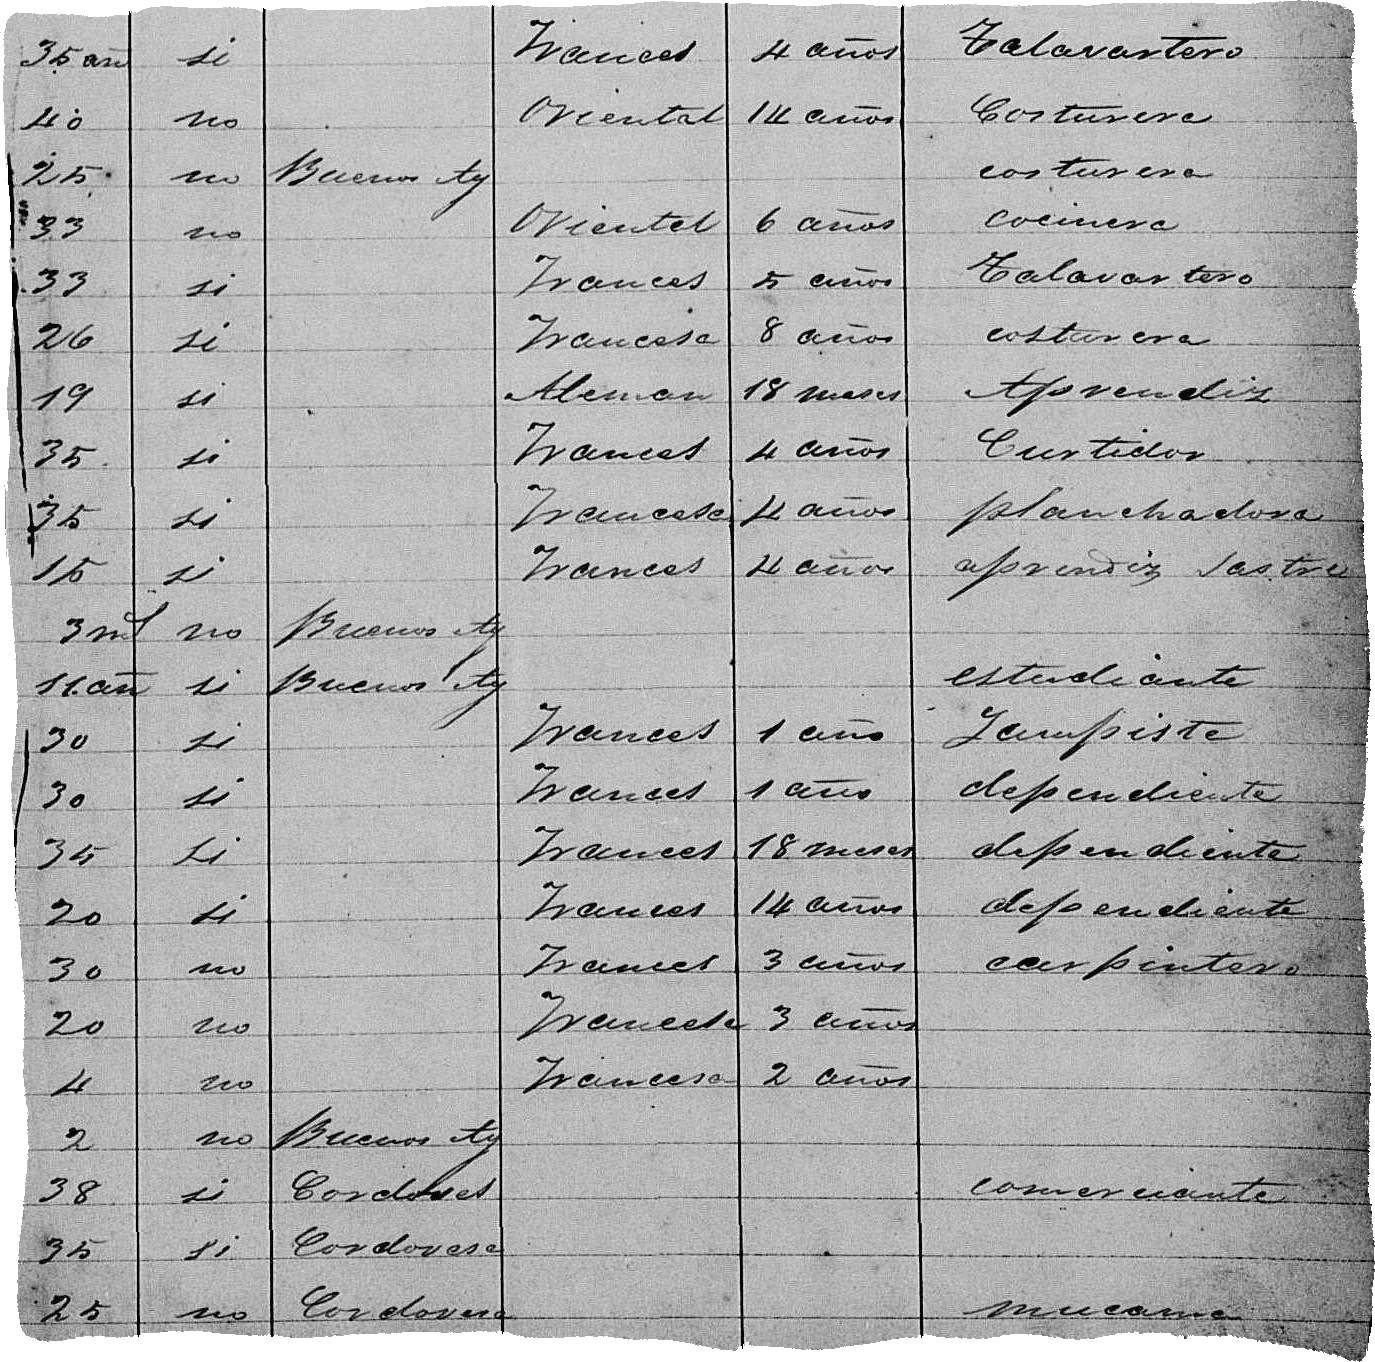 35 añ si Frances 4 años Talavartero
40 no Oriental 14 años Costurera
25 no Buenos Ay costurera
33 no Oriental 6 años cocinera
33 si Frances 5 años Talavartero
26 si Francesa 8 años costurera
19 si Aleman 18 meses Aprendiz
35 si Frances 4 años Curtidor
35 si Francesa 4 años planchadora
15 si Frances 4 años aprendiz Sastre
3 no Buenos Ay
11 añ si Buenos Ay estudiante
30 si Frances 1 año Lampiste
30 si Frances 1 año dependiente
35 si Frances 18 meses dependiente
20 si Frances 14 años dependiente
30 no Frances 3 años carpintero
20 no Francesa 3 años
4 no Francesa 2 años
2 no Buenos Ay
38 si Cordoves comerciante
35 si Cordovesa
25 no Cordovesa mucama